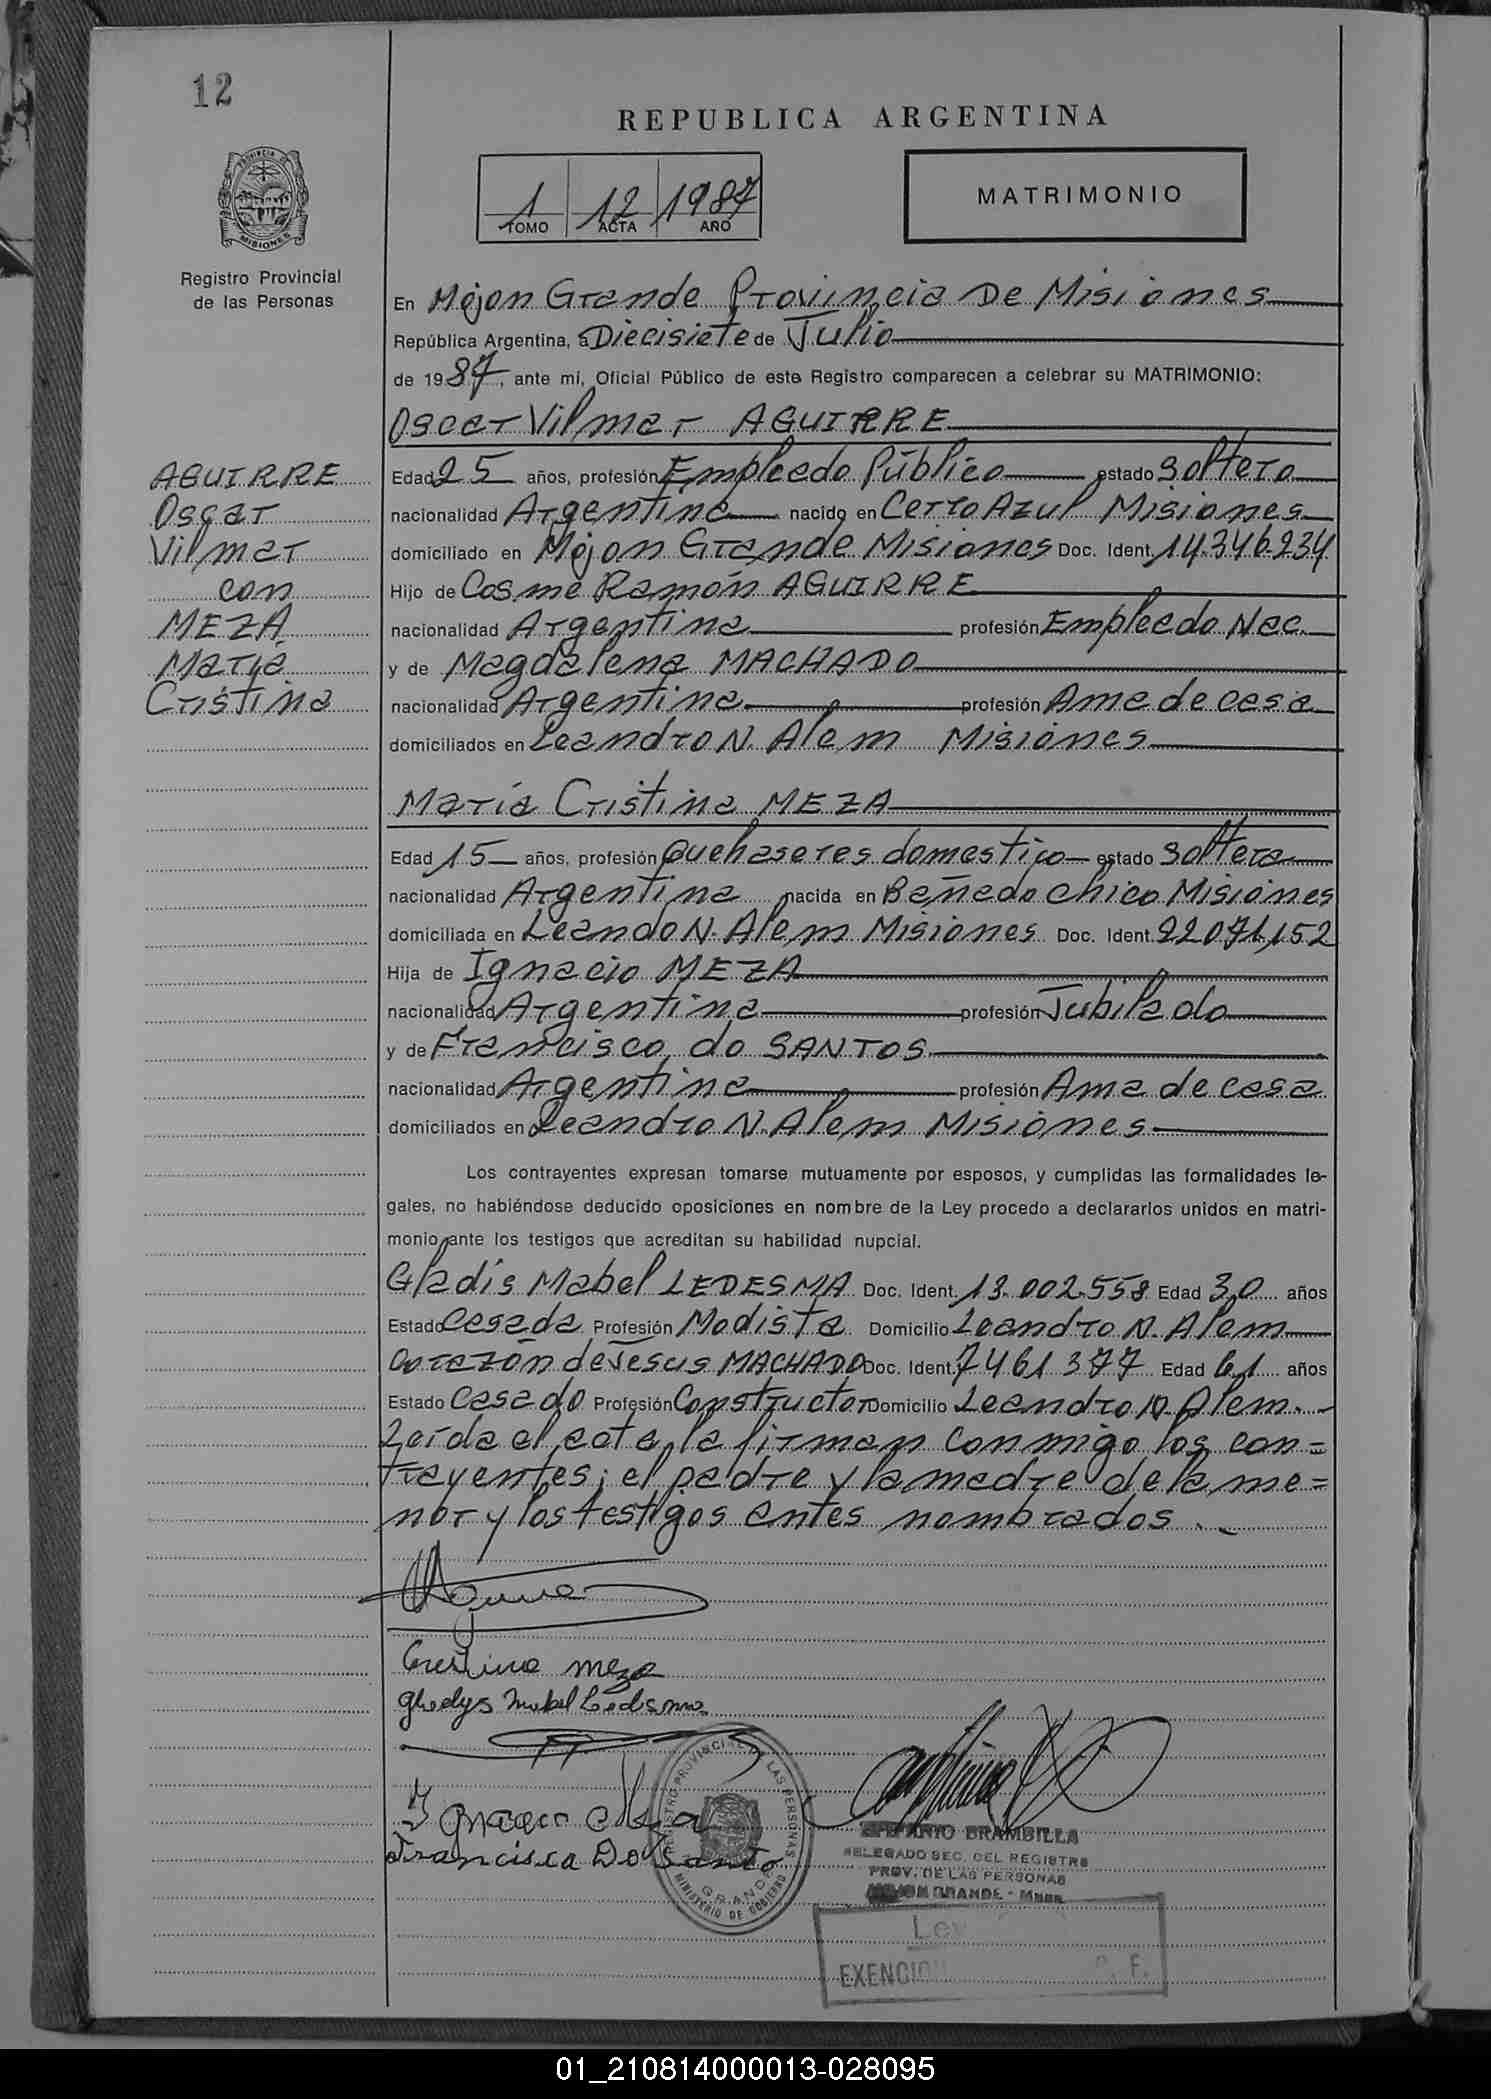 12
REPUBLICA ARGENTINA
PROVINCIA DE
MISIONES
Registro Provincial
de las Personas
1 12 1987
TOMO ACTA AÑO
MATRIMONIO
En Mojon Grande Provincia De Misiones
República Argentina, a Diecisiete de Julio
de 1987, ante mí, Oficial Público de este Registro comparecen a celebrar su MATRIMONIO:
Oscar Vilmar AGUIRRE
AGUIRRE
Oscar
Vilmar
con
MEZA
María
Cristina
Edad 25 años, profesión Empleado Público estado Soltero
nacionalidad Argentina nacido en Cerro Azul Misiones
domiciliado en Mojon Grande Misiones Doc. Ident. 14.346.234
Hijo de Cosme Ramón AGUIRRE
nacionalidad Argentina profesión Empleado Nac.
y de Magdalena MACHADO
nacionalidad Argentina profesión Ama de casa
domiciliados en Leandro N. Alem Misiones
María Cristina MEZA
Edad 15 años, profesión Quehaseres domestico estado Soltera
nacionalidad Argentina nacida en Bañado Chico Misiones
domiciliada en Leando N. Alem Misiones Doc. Ident. 22.071.152
Hija de Ignacio MEZA
nacionalidad Argentina profesión Jubilado
y de Francisca do SANTOS
nacionalidad Argentina profesión Ama de casa
domiciliados en Leandro N. Alem Misiones
Los contrayentes expresan tomarse mutuamente por esposos, y cumplidas las formalidades le-
gales, no habiéndose deducido oposiciones en nombre de la Ley procedo a declararlos unidos en matri-
monio ante los testigos que acreditan su habilidad nupcial.
Gladis Mabel LEDESMA Doc. Ident. 13.002.558 Edad 30 años
Estado Casada Profesión Modista Domicilio Leandro N. Alem
Corazón de Jesus MACHADO Doc. Ident. 7461377 Edad 61 años
Estado Casado Profesión Constructor Domicilio Leandro N. Alem.
Leída el acta, la firman conmigo los con=
trayentes; el padre y la madre de la me=
nor y los testigos antes nombrados.
Cristina meza
Gladys Mabel Ledesma
Ignacio Meza
Francisca Do Santo
REGISTRO PROVINCIAL DE LAS PERSONAS
GRANDE
MINISTERIO DE GOBIERNO
EPIFANIO BRAMBILLA
DELEGADO SEC. DEL REGISTRO
PROV. DE LAS PERSONAS
MOJON GRANDE - Mnes
Ley
EXENCION
01_210814000013-028095